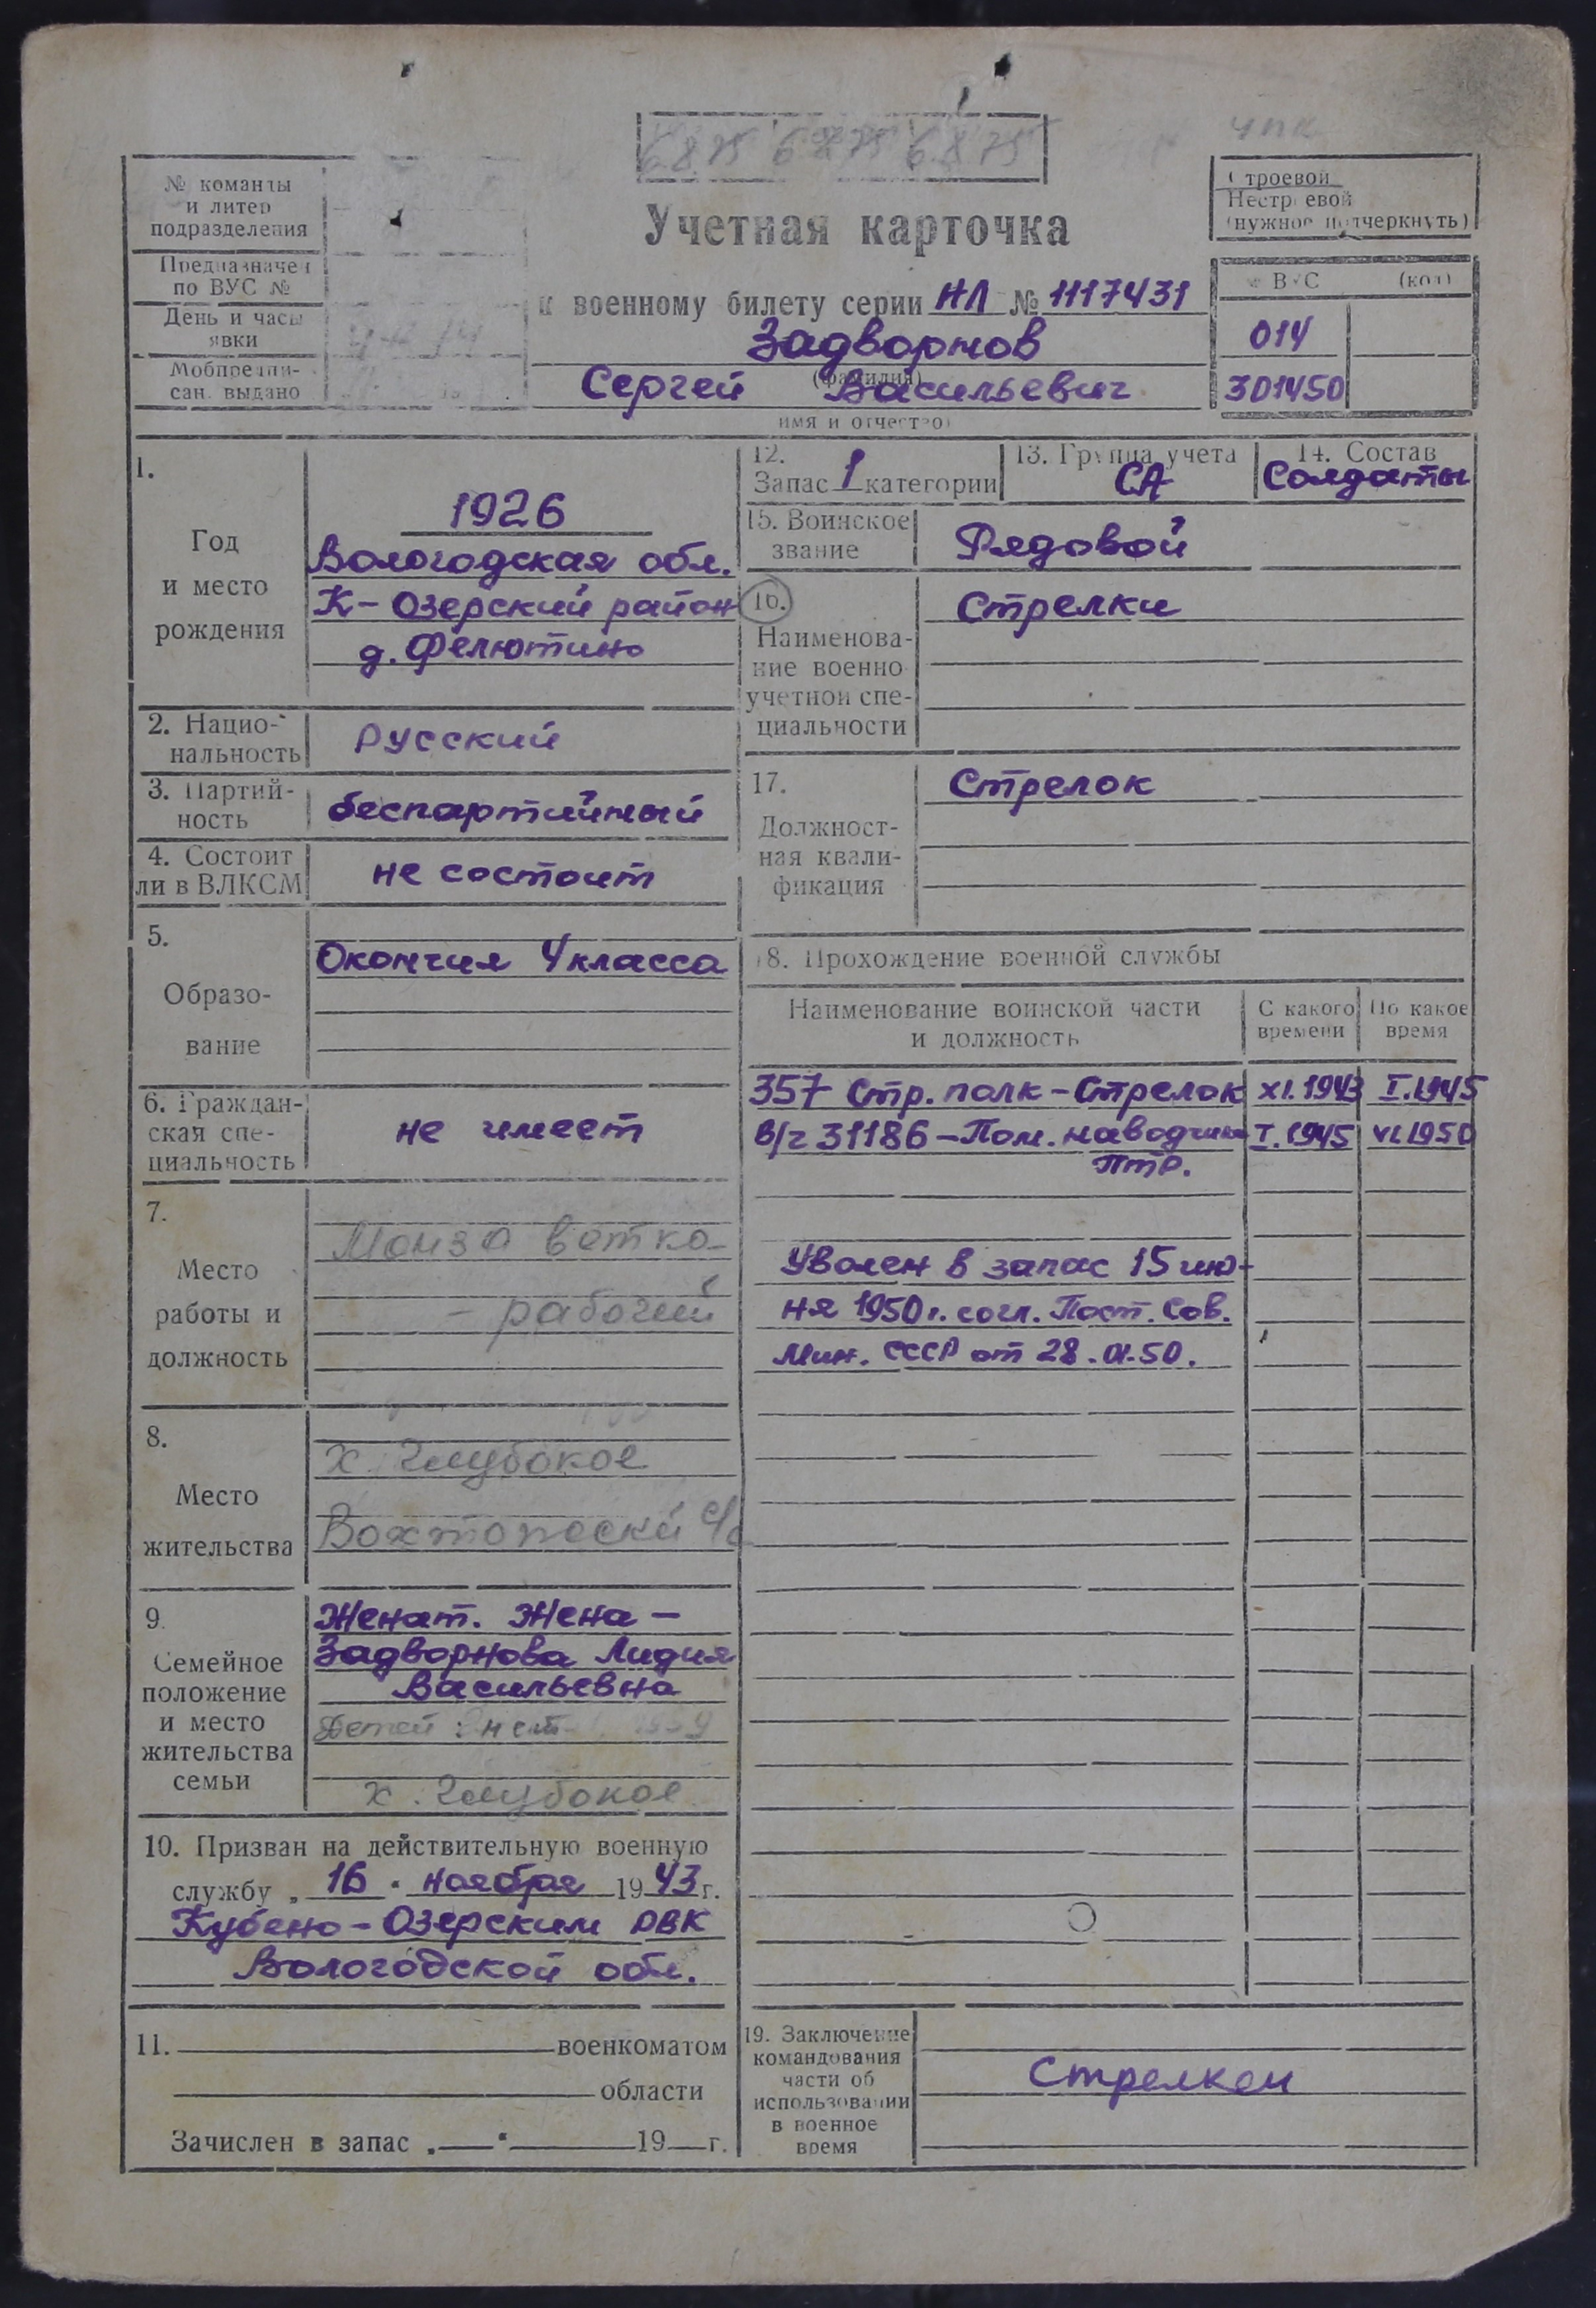 6875 6875 6875
чпк
№ команды
и литер
подразделения
Предназначен
по ВУС №
День и часы
явки
Мобпредпи-
сан. выдано
Строевой
Нестроевой
(нужное подчеркнуть)
Учетная карточка
к военному билету серии НЛ № 1117431
Задворнов
(фамилия)
Сергей Васильевич
имя и отчество
ВУС (код)
014
301450
1.
Год
и место
рождения
1926
Вологодская обл.
К-Озерский район
д. Фелютино
2. Нацио-
нальность
Русский
3. Партий-
ность
беспартийный
4. Состоит
ли в ВЛКСМ
не состоит
5.
Образо-
вание
Окончил 4 класса
6. Граждан-
ская спе-
циальность
не имеет
7.
Место
работы и
должность
Монза ветка
- рабочий
8.
Место
жительства
х. Глубокое
Вохтожский с/с
9.
Семейное
положение
и место
жительства
семьи
Женат. Жена -
Задворнова Лидия
Васильевна
Детей: нет
х. Глубокое
10. Призван на действительную военную
службу „ 16 " ноября 1943 г.
Кубено-Озерским РВК
Вологодской обл.
11. военкоматом
области
Зачислен в запас „ " 19 г.
12.
Запас 1 категории
13. Группа учета
СА
14. Состав
Солдаты
15. Воинское
звание
Рядовой
16.
Наименова-
ние военно
учетной спе-
циальности
Стрелки
17.
Должност-
ная квали-
фикация
Стрелок
18. Прохождение военной службы
Наименование воинской части
и должность
С какого
времени
По какое
время
357 Стр. полк - Стрелок XI.1943 I.1945
В/ч 31186 - Пом. наводчика I.1945 VI.1950
ПТР.
Уволен в запас 15 ию-
ня 1950 г. согл. Пост. Сов.
Мин. СССР от 28.01.50.
19. Заключение
командования
части об
использовании
в военное
время
Стрелком